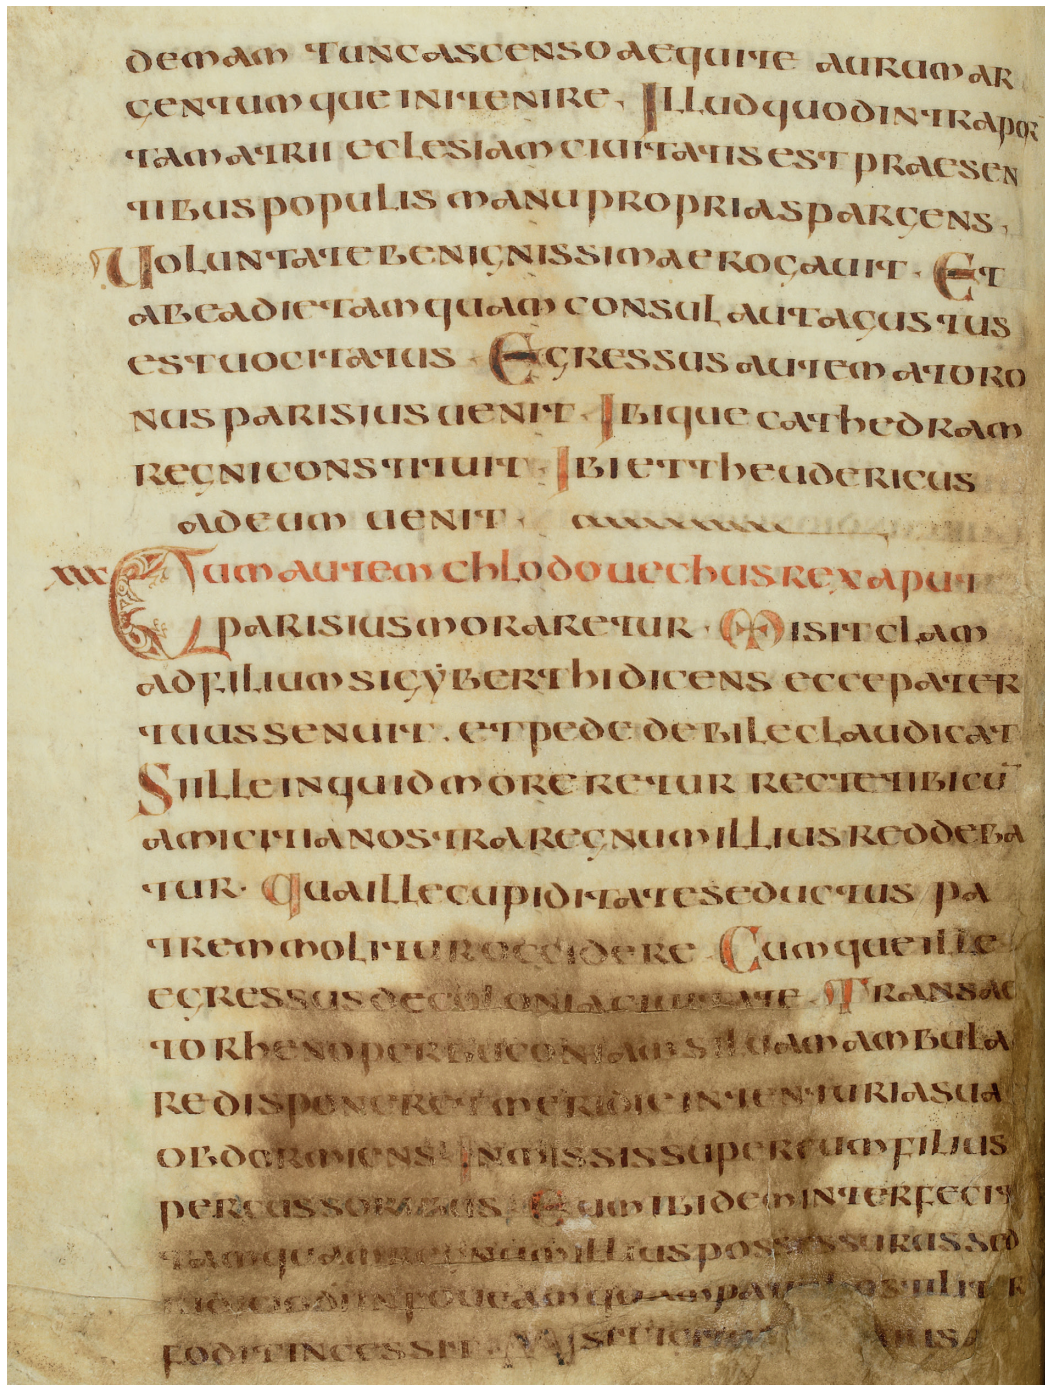 demam tunc ascenso aequite aurum ar
gentumque in itenire, Illud quod intra por
tam atrii eclesiam ciuitatis est praesen
tibus populis manu propria spargens,
Uoluntate benignissima erogauit. Et
ab ea die tamquam consul aut agustus
est uocitatus. Egressus autem a toro
nus parisius uenit. Ibique cathedram
regni constituit. Ibi et theudericus
ad eum uenit.
xxx Cum autem chlodouechus rex aput
parisius moraretur. Misit clam
ad filium sigyberthi dicens ecce pater
tuus senuit. et pede debile claudicat
Si ille inquid morereretur recte tibi cū
amicitia nostra regnum illius reddeba
tur. Qua ille cupiditate seductus pa
trem molitur occidere Cumque ille
egressus de colonia ciuitate. Transac
to rheno per buconiam siluam ambula
re disponeret meridie in tenturia sua
obdormiens Inmissis super eum filius
percussoribus. Eum ibidem interfecit
tamquam regnum illius possessurus sed
foditi incessit.